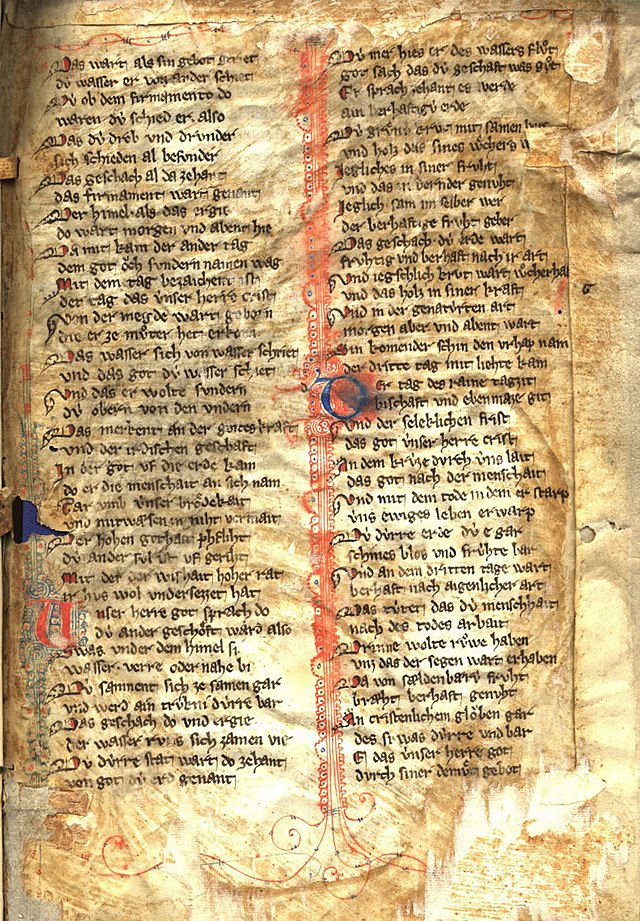 Das wart als sin gebot geriet
du wasser er von ander schiet
Du ob dem firmamento do
waren du schied er also
Das du drob vnd drunder
sich schieden al besunder
Das geschach al da zehant
das firmament wart genant
Der himel als das ergie
do wart morgen vnd abent hie
Da mit kam der ander tag
dem got och sundern namen wag
Mit dem tag bezaichent ist
der tag das vnser herre crist
Von der megde wart geborn
die er ze muter het erkorn
Das wasser sich von wasser schriet
vnd das got du wasser schiet
Vnd das er wolte sundern
du obern von den vndern
Das merkent an der gotes kraft
vnd der irdischen geschaft
In der got vf die erde kam
do er die menschait an sich nam
Gar vmb vnser brodekait
vnd mit wasser in niht vermait
Der hohen gothait phfliht
du ander sul ist vf geriht
Mit der der wishait hoher rat
ir hus wol vndersezzet hat
Vnser herre got sprach do
du ander geschoft ward also
Swas vnder dem himel si
wasser verre oder nahe bi
Du samnent sich ze samen gar
vnd werd ain trukni durre bar
Das geschach do vnd ergie
der wasser sich zamen vie
Du durre stat wart do zehant
von got du erd genant
Du mer hies er des wassers flut
got sach das du geschaft was gut
Er sprach zehant es werde
ain berhaftigu erde
Du grune crut mit samen
vnd holz das sines wchers
iegliches in siner fruht
vnd das in der genuht
ieglich sam im selber wer
der berhaftige fruht geber
Das geschach du erde wart
fruhtig vnd berhaft nach ir art
Vnd iegschlich krut wart wcherhaft
vnd das holz in siner kraft
Vnd in der genaturten art
morgen aber vnd abent wart
Sin komender schin den vrhap nam
der dritte tag mit liehte kam
Der tag des raine tagut
bischaft vnd ebenmaze git
Vnd der seleklichen frist
das got vnser herre crist
An dem kruze durch vns lait
das got nach der menschait
Vnd mit dem tode in dem er starp
vns ewiges leben erwarp
Du durre erde du e gar
schines blos vnd fruhte bar
Vnd an dem dritten tage wart
berhaft nach aigenlicher art
Das tutet das du menschhait
nach des todes arbait
Drinne wolte ruwe haben
vnz das der segen wart erhaben
Da von sældenbaru fruht
braht berhaft genuht
An cristenlichem globen gar
des si was durre vnd bar
E das vnser herre got
durch siner demut gebot